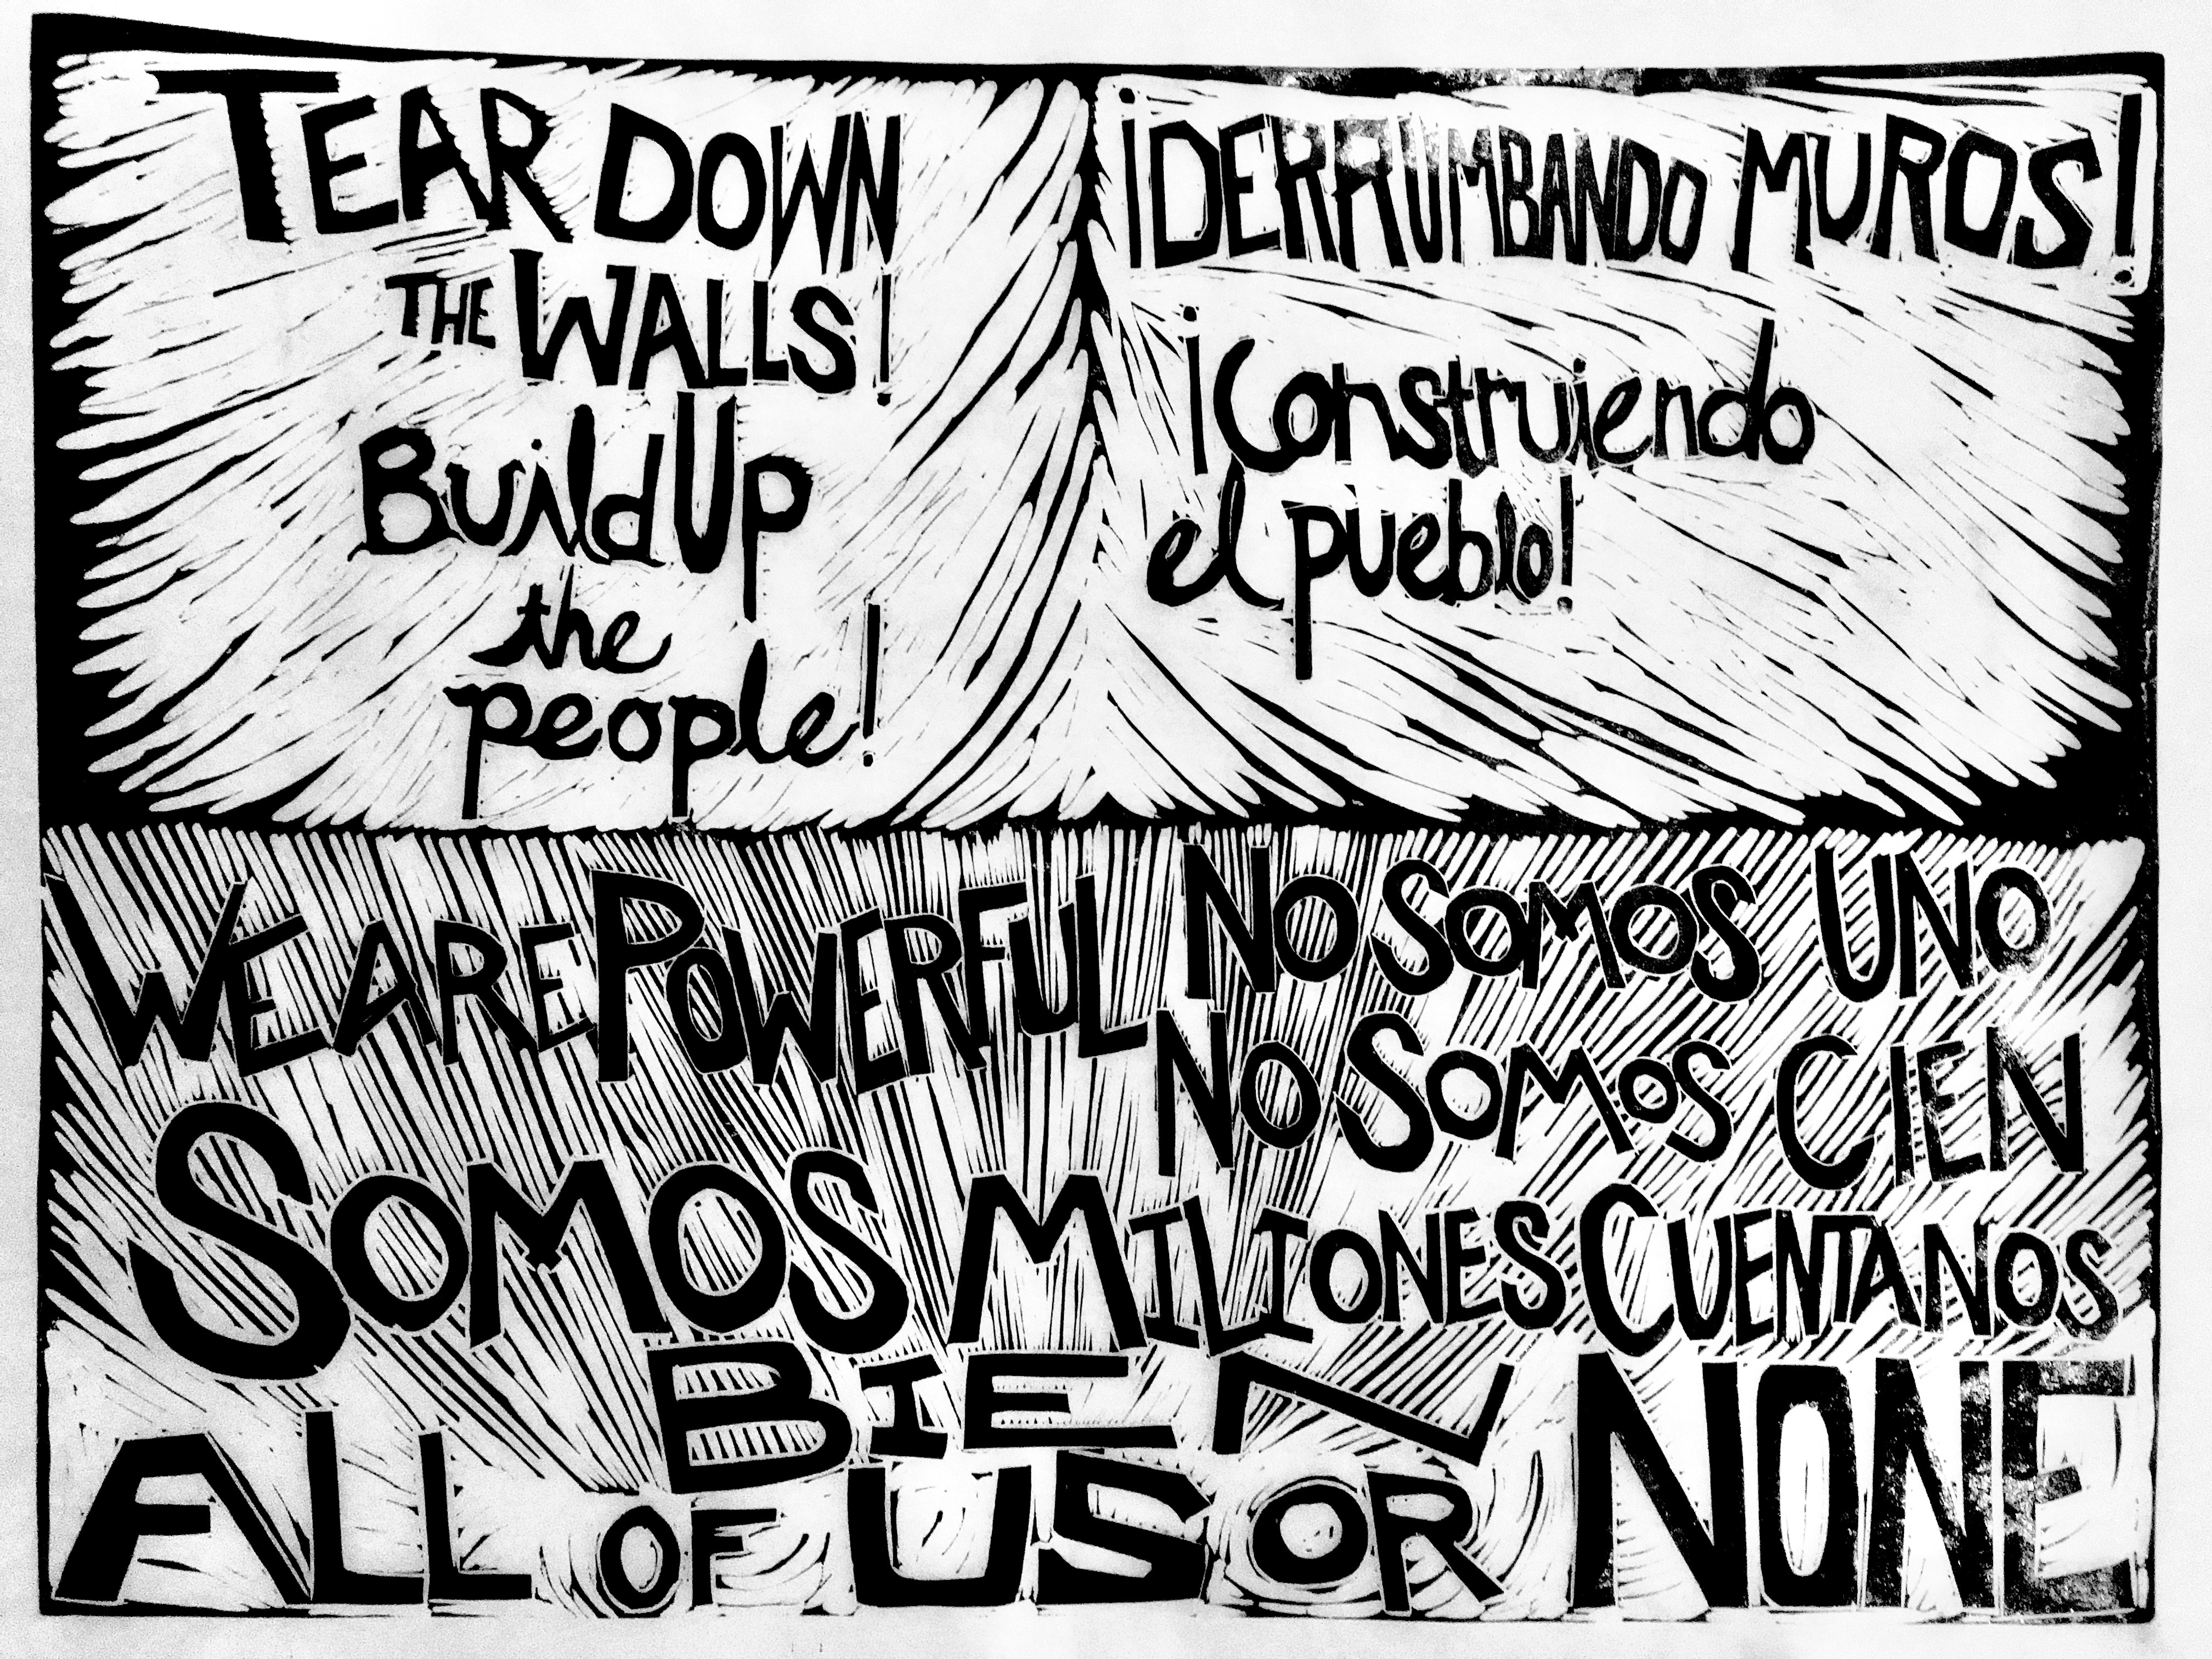 TEAR DOWN
THE WALLS!
Build Up
the
people!
¡DERRUMBANDO MUROS!
¡Construiendo
el pueblo!
WE ARE POWERFUL
NO SOMOS UNO
NO SOMOS CIEN
SOMOS MILIONES CUENTANOS
BIEN
ALL OF US OR NONE